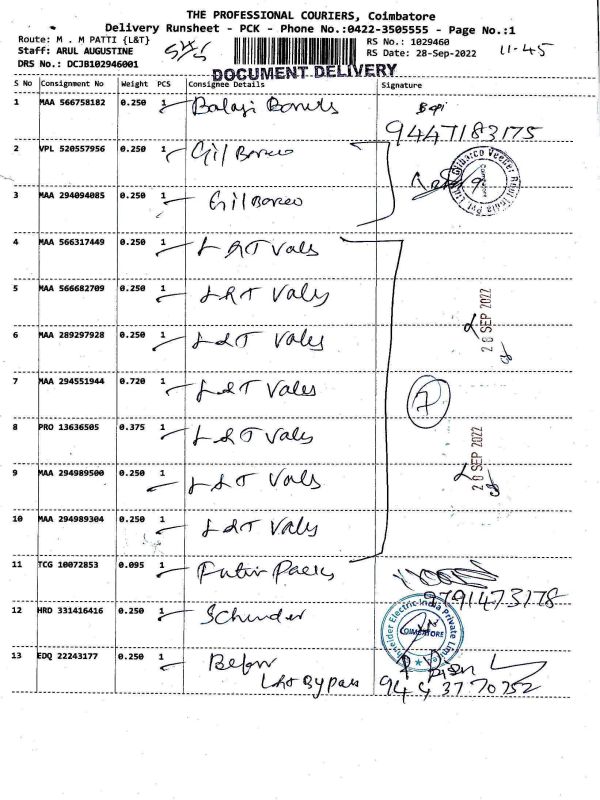 THE PROFESSIONAL COURIERS, Coimbatore
Delivery Runsheet - PCK - Phone No.:0422-3505555 - Page No.:1
Route: M . M PATTI {L&T} RS No.: 1029460 11-45
Staff: ARUL AUGUSTINE RS Date: 28-Sep-2022
DRS No.: DCJB102946001 DOCUMENT DELIVERY
S No Consignment No Weight PCS Consignee Details Signature
1 MAA 566758182 0.250 1 Balaji
9447183175
2 VPL 520557956 0.250 1 Gil Barco
3 MAA 294094085 0.250 1 Gil Barco
Gilbarco Veeder Root India Pvt Ltd
4 MAA 566317449 0.250 1 L&T Vals
5 MAA 566682709 0.250 1 L&T Vals
28 SEP 2022
6 MAA 289297928 0.250 1 L&T Vals
7 MAA 294551944 0.720 1 L&T Vals
7
8 PRO 13636505 0.375 1 L&T Vals
28 SEP 2022
9 MAA 294989500 0.250 1 L&T Vals
10 MAA 294989304 0.250 1 L&T Vals
11 TCG 10072853 0.095 1
9791473178
12 HRD 331416416 0.250 1
Schneider Electric India Private Limited
COIMBATORE
13 EDQ 22243177 0.250 1
L&T Bypass 9443770752